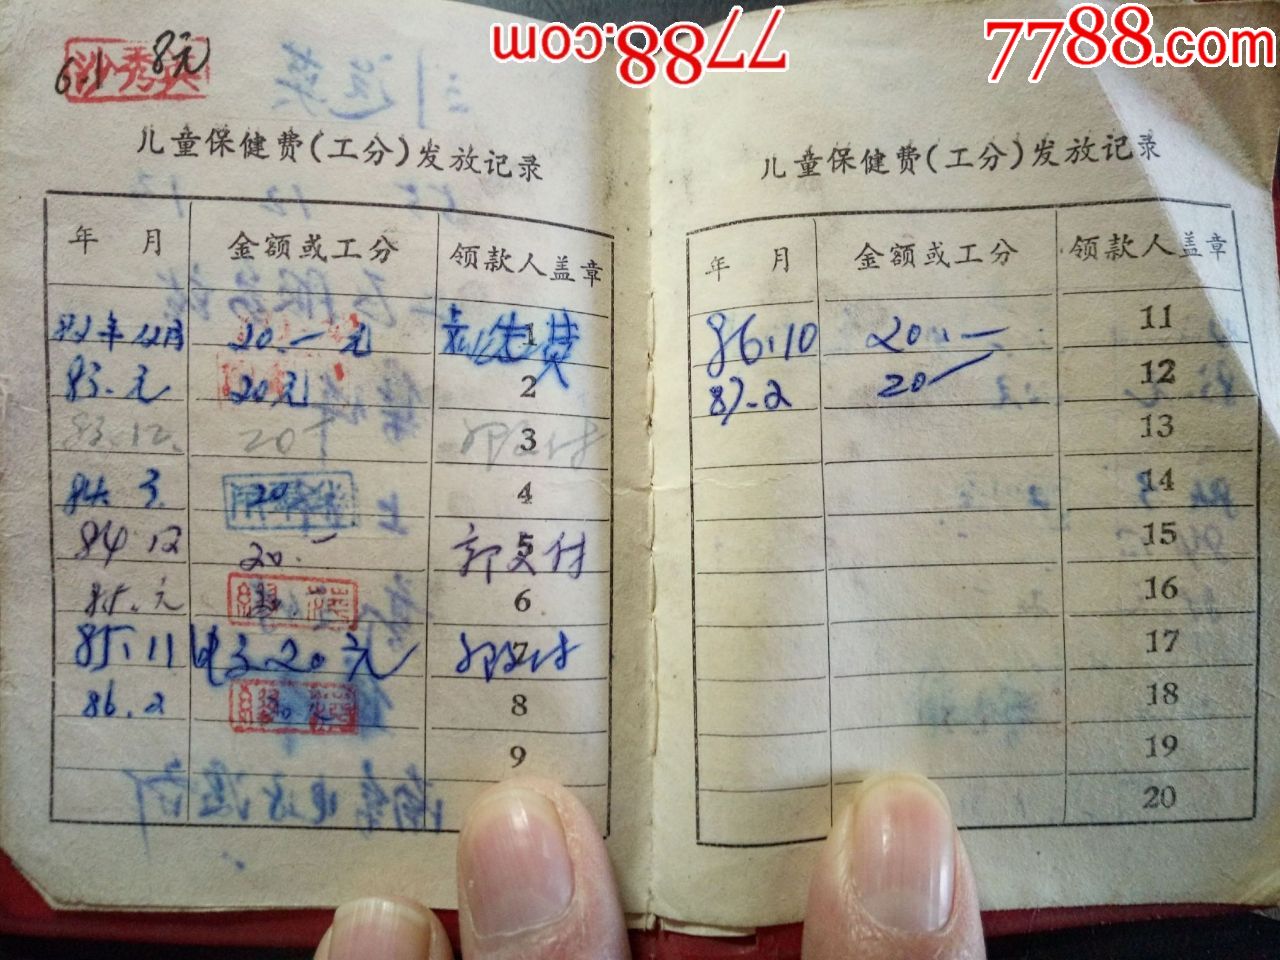 7788.com
7788.com
8元
6.1
沙秀英
儿童保健费(工分)发放记录
年 月 金额或工分 领款人盖章
82年12月 20.一元 1
83.元 20元 2
83.12. 20 3
84.3. 20 4
84.12 20.一 郭文付 5
85.元 6
85.11 20元 郭文付 7
86.2 8
9
儿童保健费(工分)发放记录
年 月 金额或工分 领款人盖章
86.10 20.一 11
87.2 20 12
13
14
15
16
17
18
19
20